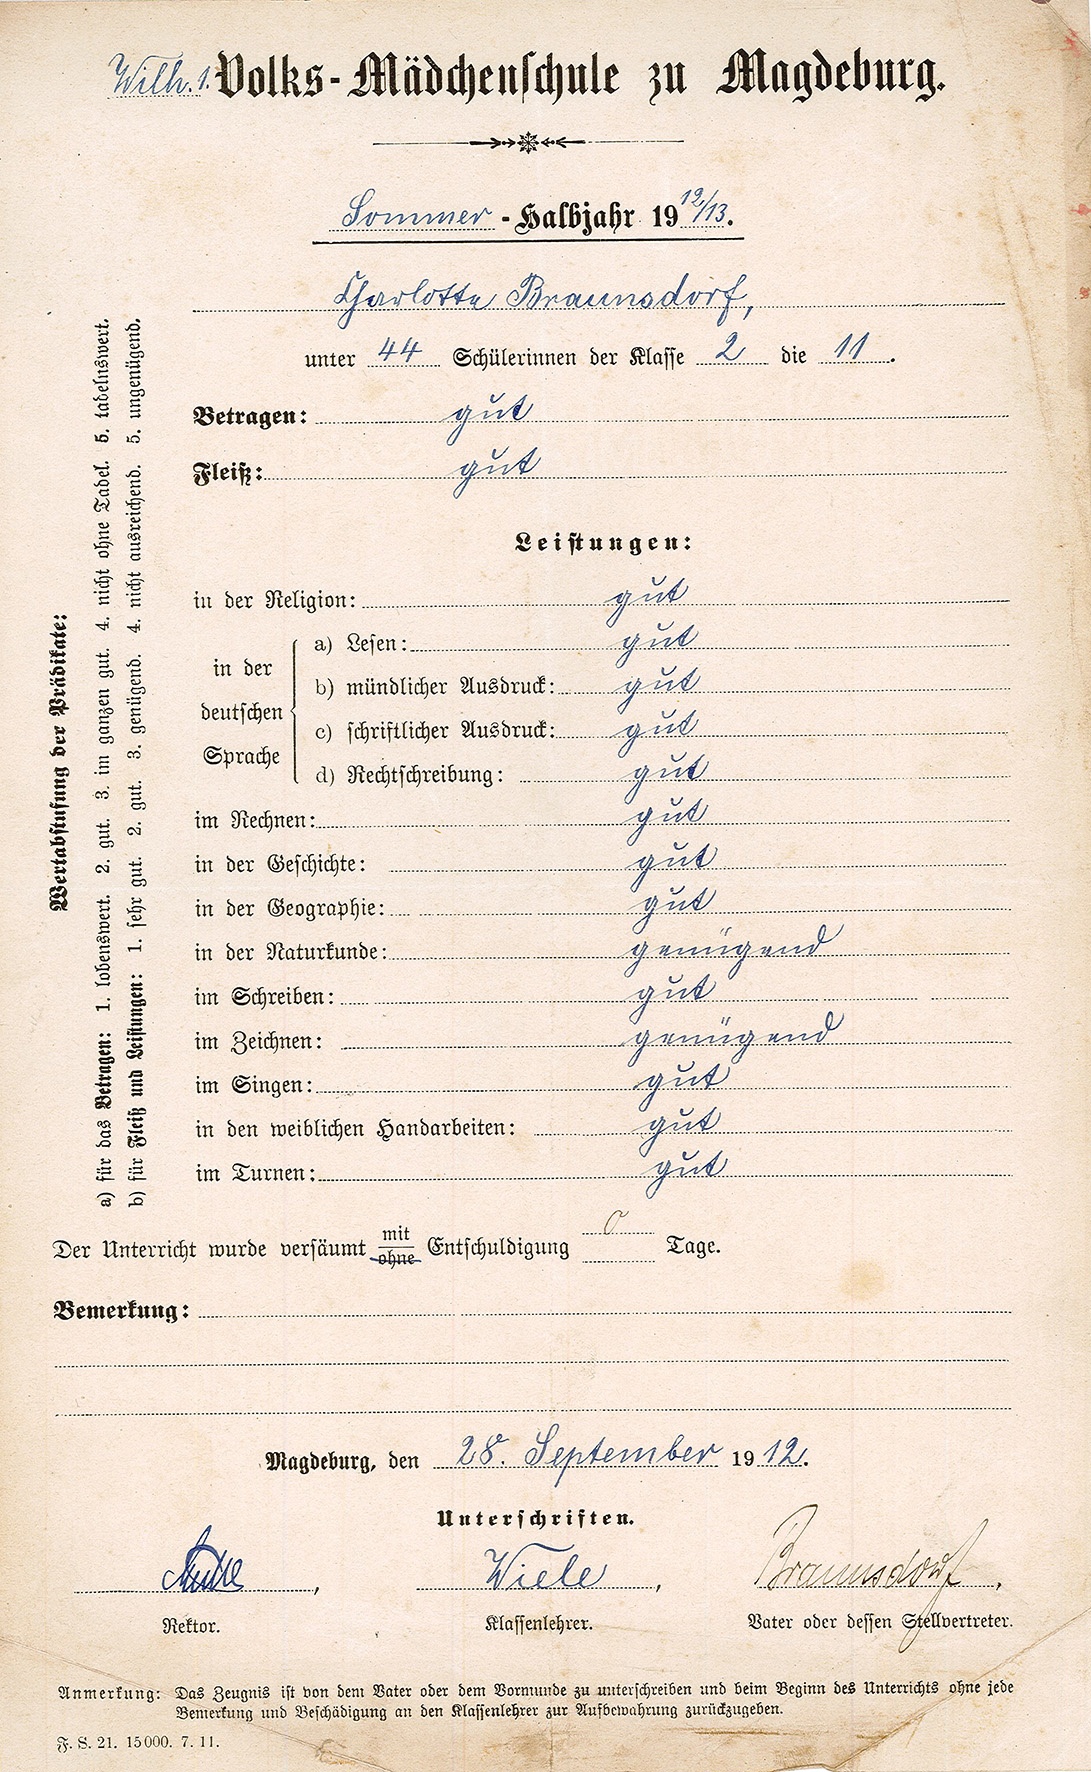 Wilh. 1. Volks-Mädchenschule zu Magdeburg.
Sommer - Halbjahr 1912/13.
Charlotte Braunsdorf,
unter 44 Schülerinnen der Klasse 2 die 11.
Betragen: gut
Fleiß: gut
Leistungen:
in der Religion: gut
in der deutschen Sprache
a) Lesen: gut
b) mündlicher Ausdruck: gut
c) schriftlicher Ausdruck: gut
d) Rechtschreibung: gut
im Rechnen: gut
in der Geschichte: gut
in der Geographie: gut
in der Naturkunde: genügend
im Schreiben: gut
im Zeichnen: genügend
im Singen: gut
in den weiblichen Handarbeiten: gut
im Turnen: gut
Wertabstufung der Prädikate:
a) für das Betragen: 1. lobenswert. 2. gut. 3. im ganzen gut. 4. nicht ohne Tadel. 5. tadelnswert.
b) für Fleiß und Leistungen: 1. sehr gut. 2. gut. 3. genügend. 4. nicht ausreichend. 5. ungenügend.
Der Unterricht wurde versäumt mit ohne Entschuldigung 0 Tage.
Bemerkung:
Magdeburg, den 28. September 1912.
Unterschriften.
Wiele, Braunsdorf.
Rektor. Klassenlehrer. Vater oder dessen Stellvertreter.
Anmerkung: Das Zeugnis ist von dem Vater oder dem Vormunde zu unterschreiben und beim Beginn des Unterrichts ohne jede
Bemerkung und Beschädigung an den Klassenlehrer zur Aufbewahrung zurückzugeben.
F. S. 21. 15000. 7. 11.